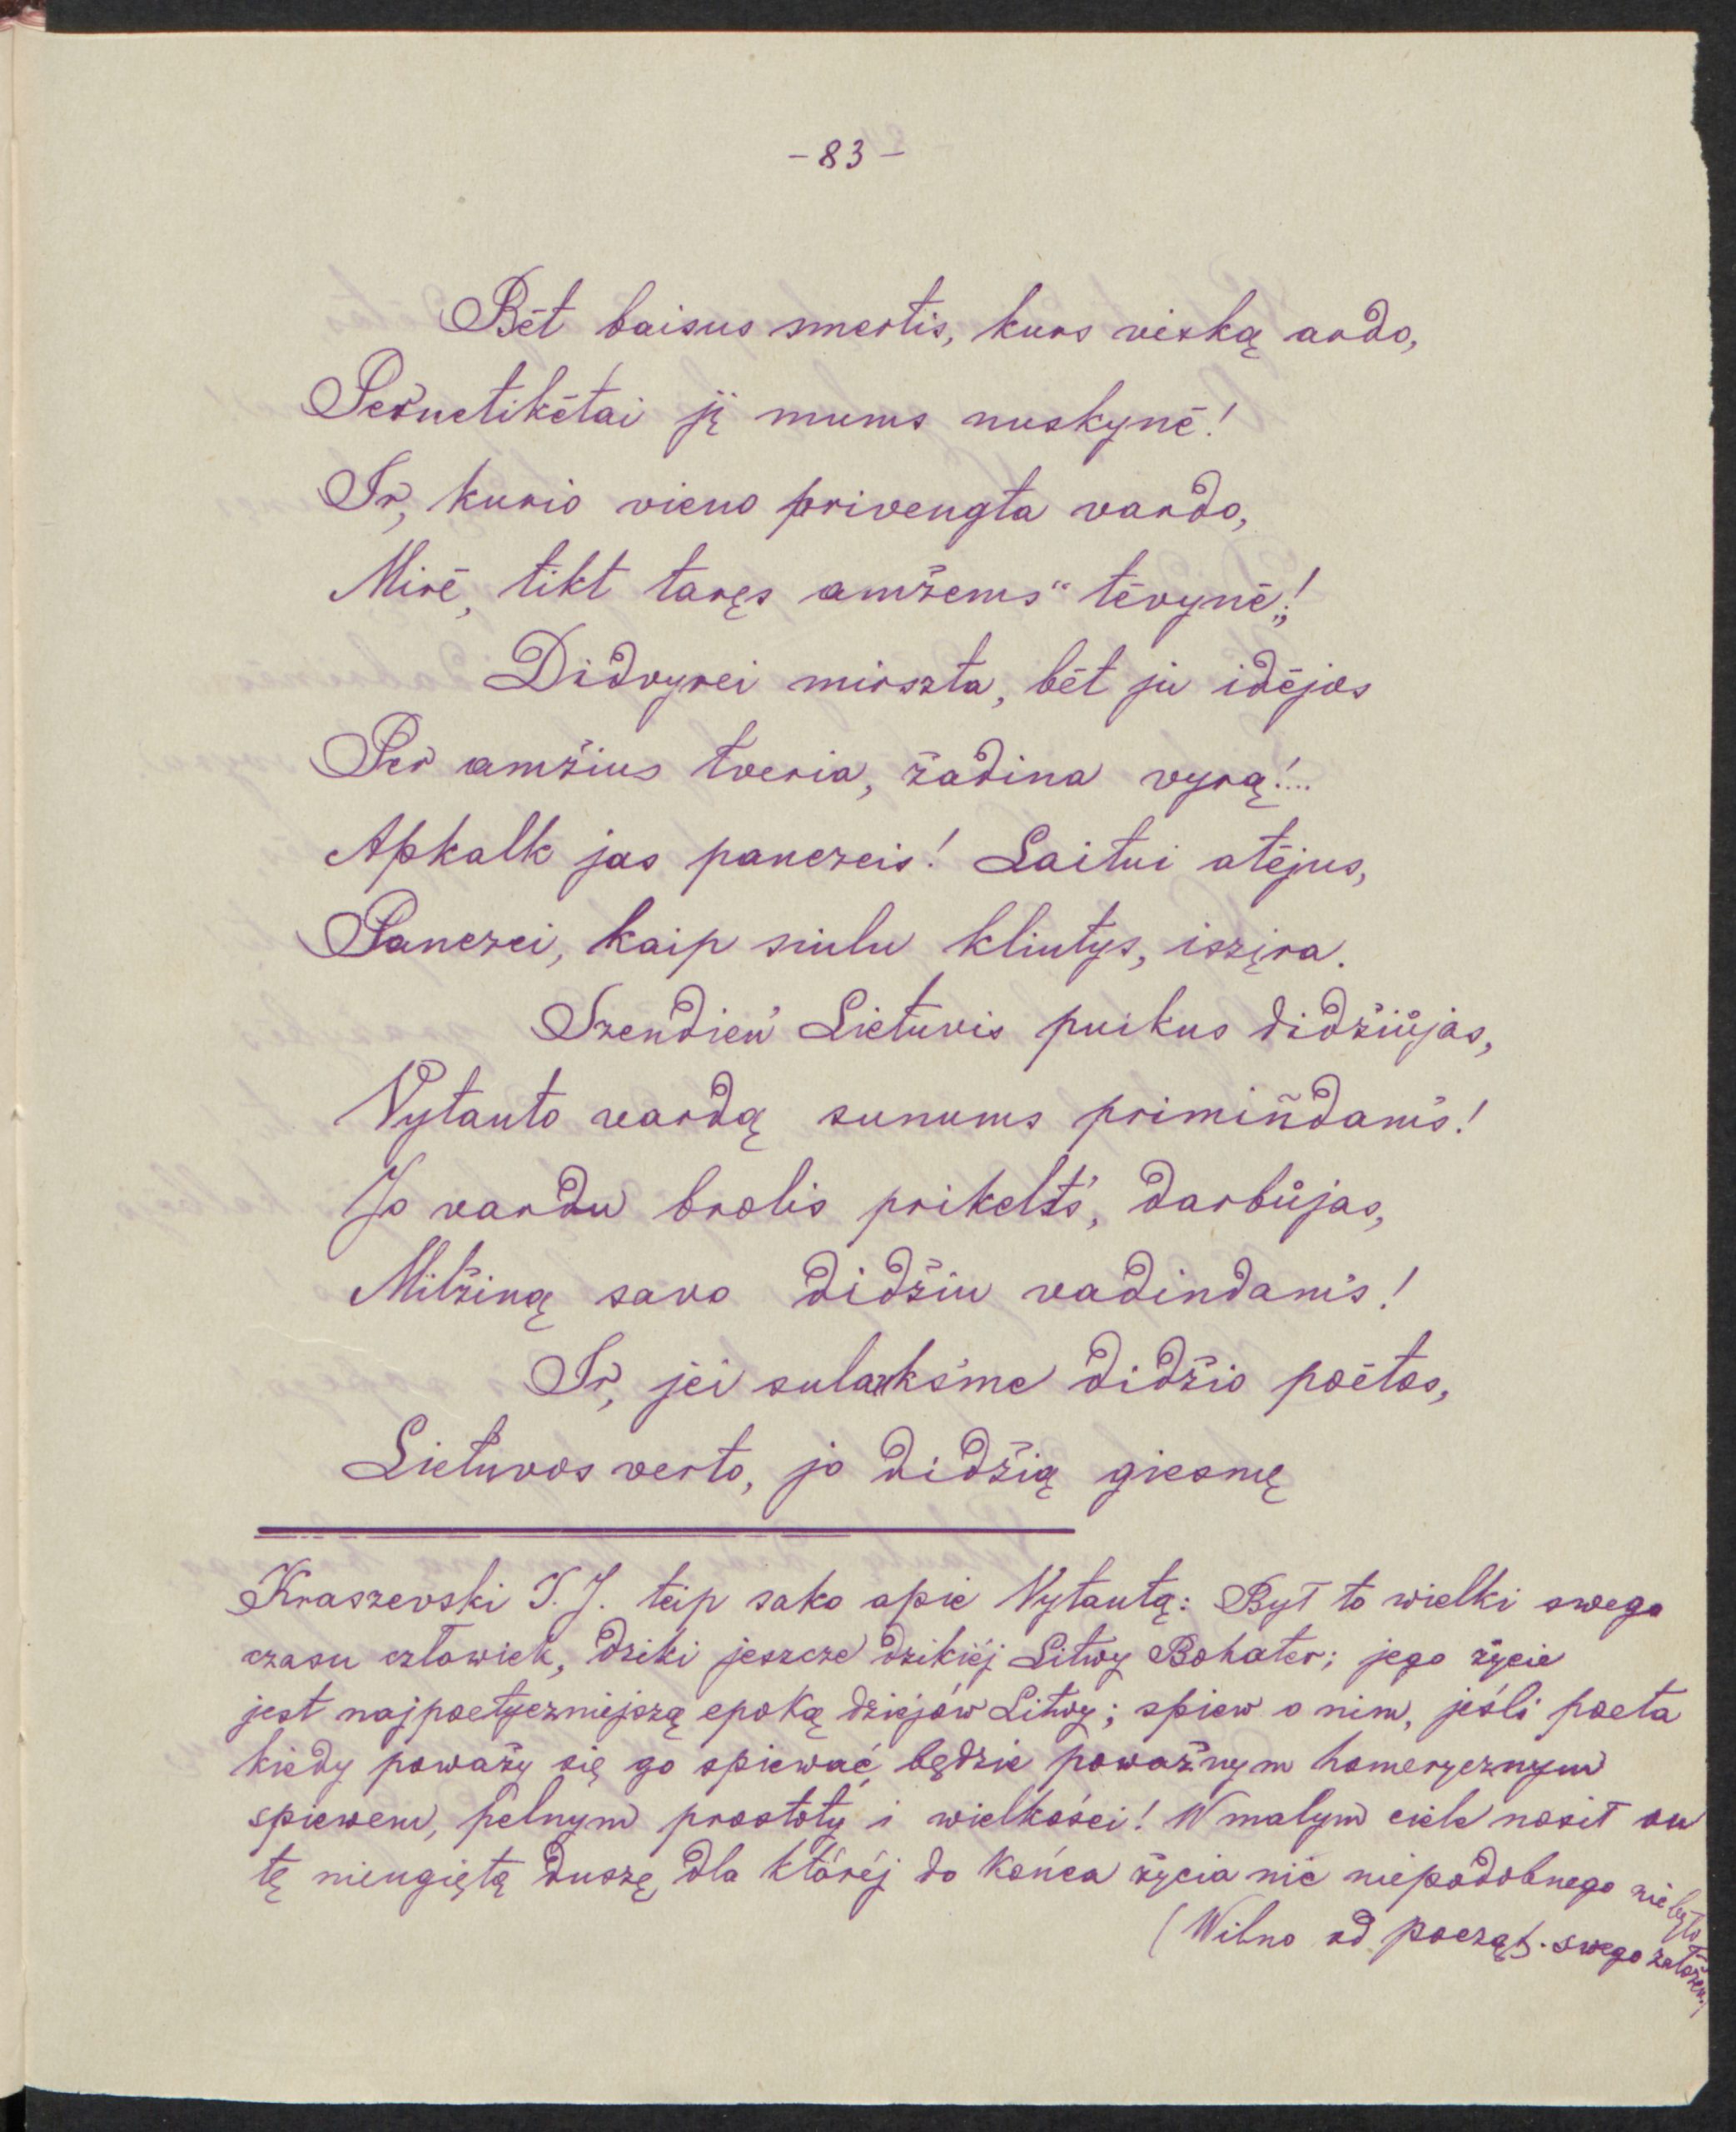 - 83 -
Bėt baisus smertis, kurs viską ardo,
Pernetikėtai jį mums nuskynė!
Ir, kurio vieno privengta vardo,
Mirė, tikt taręs amžems "tėvynė„!
Didvyrei mirszta, bėt ju idėjos
Per amžius tveria, žadina vyrą!...
Apkalk jas panczeis! Laikui atėjus,
Panczei, kaip siulu kliutys, iszįra.
Szendien' Lietuvis puikus didžiůjas,
Vytauto vardą sunums primiñdams!
Jo vardu brolis prikelts, darbůjas,
Milžiną savo didžiu vadindams!
Ir, jei sulauksme didžio poėtos,
Lietuvos verto, jo didžią giesmę
Kraszevski I. J. teip sako apie Vytautą: Był to wielki swego
czasu człowiek, dziki jeszcze dzikiéj Litwy Bohater; jego życie
jest najpoetyczniejszą epoką dziejów Litwy; spiew o nim, jeśli poeta
kiedy poważy się go spiewać, będzie poważnym homerycznym
spiewem, pełnym prostoty i wielkości! W małym ciele nosił on
tę nieugiętą duszę, dla któréj do końca życia nic niepodobnego nie było
(Wilno od począt. swego założen.)